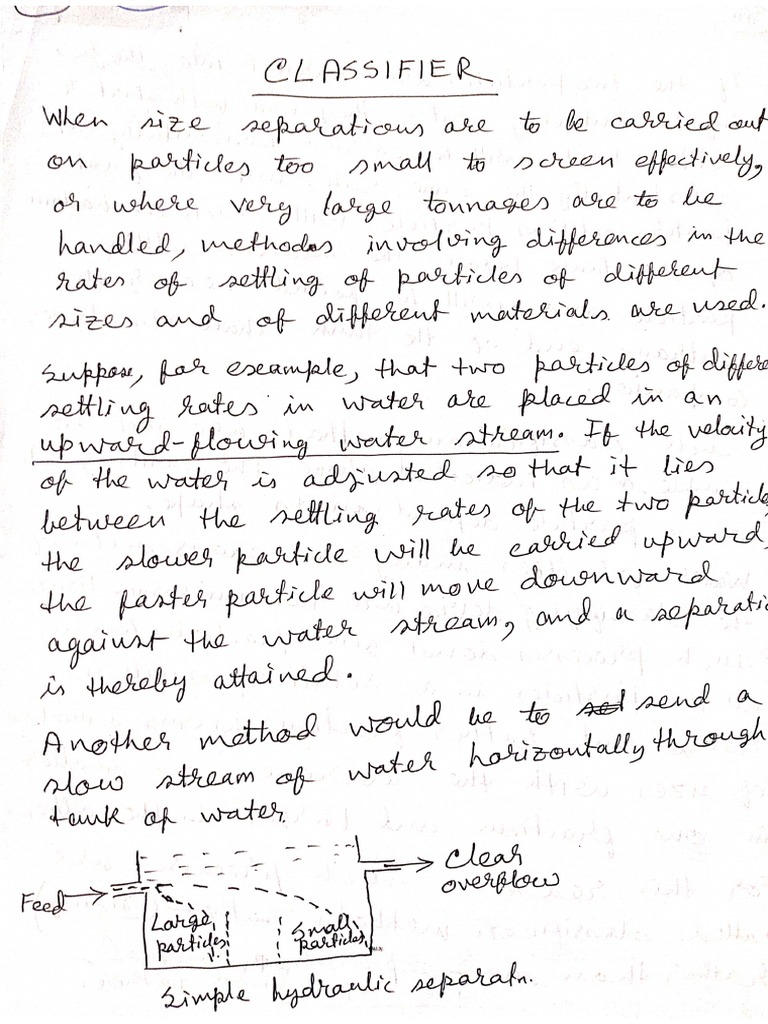 CLASSIFIER
When size separations are to be carried out
on particles too small to screen effectively,
or where very large tonnages are to be
handled, methods involving differences in the
rates of settling of particles of different
sizes and of different materials are used.
Suppose, for example, that two particles of differe
settling rates in water are placed in an
upward-flowing water stream. If the velocity
of the water is adjusted so that it lies
between the settling rates of the two particle
the slower particle will be carried upward,
the faster particle will move downward
against the water stream, and a separati
is thereby attained.
Another method would be to send a
slow stream of water horizontally through
tank of water.
Clear
overflow
Feed
Large
particles
Small
particles
Simple hydraulic separatn.